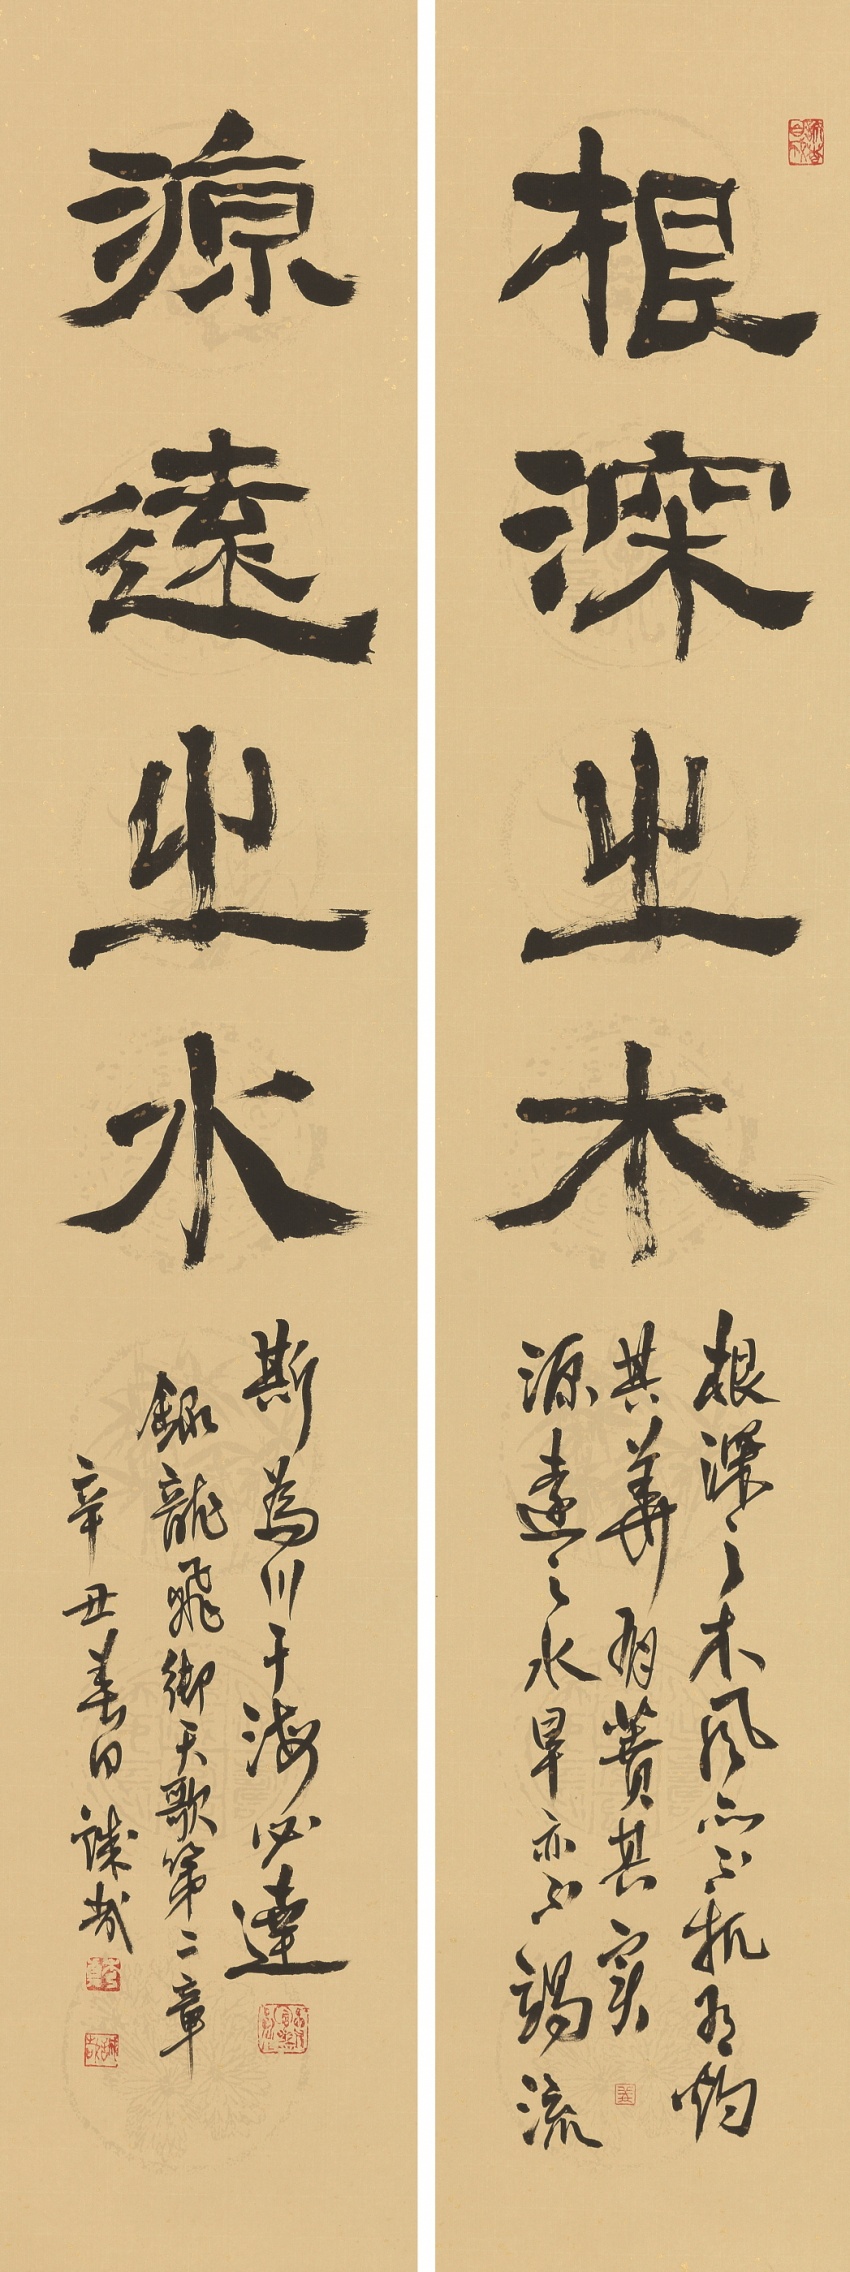 根深之木
根深之木風亦不扤有灼
其華有蕡其実
源遠之水旱亦不竭流
源遠之水
斯為川于海必達
錄龍飛御天歌第二章
辛丑春日誠哉